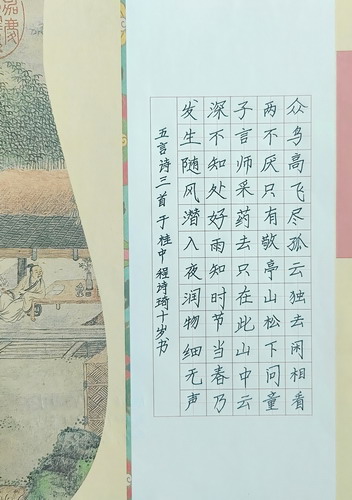 众鸟高飞尽孤云独去闲相看
两不厌只有敬亭山松下问童
子言师采药去只在此山中云
深不知处好雨知时节当春乃
发生随风潜入夜润物细无声
五言诗三首 于桂中 程诗琦十岁书
嘉慶